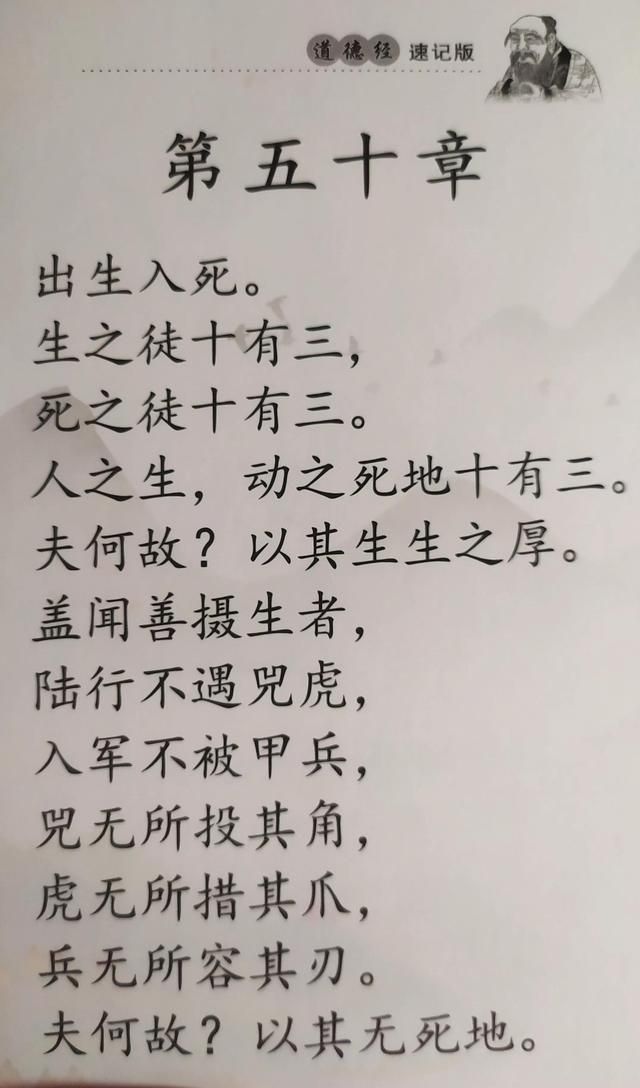 道德经 速记版
第五十章
出生入死。
生之徒十有三，
死之徒十有三。
人之生，动之死地十有三。
夫何故？以其生生之厚。
盖闻善摄生者，
陆行不遇兕虎，
入军不被甲兵，
兕无所投其角，
虎无所措其爪，
兵无所容其刃。
夫何故？以其无死地。